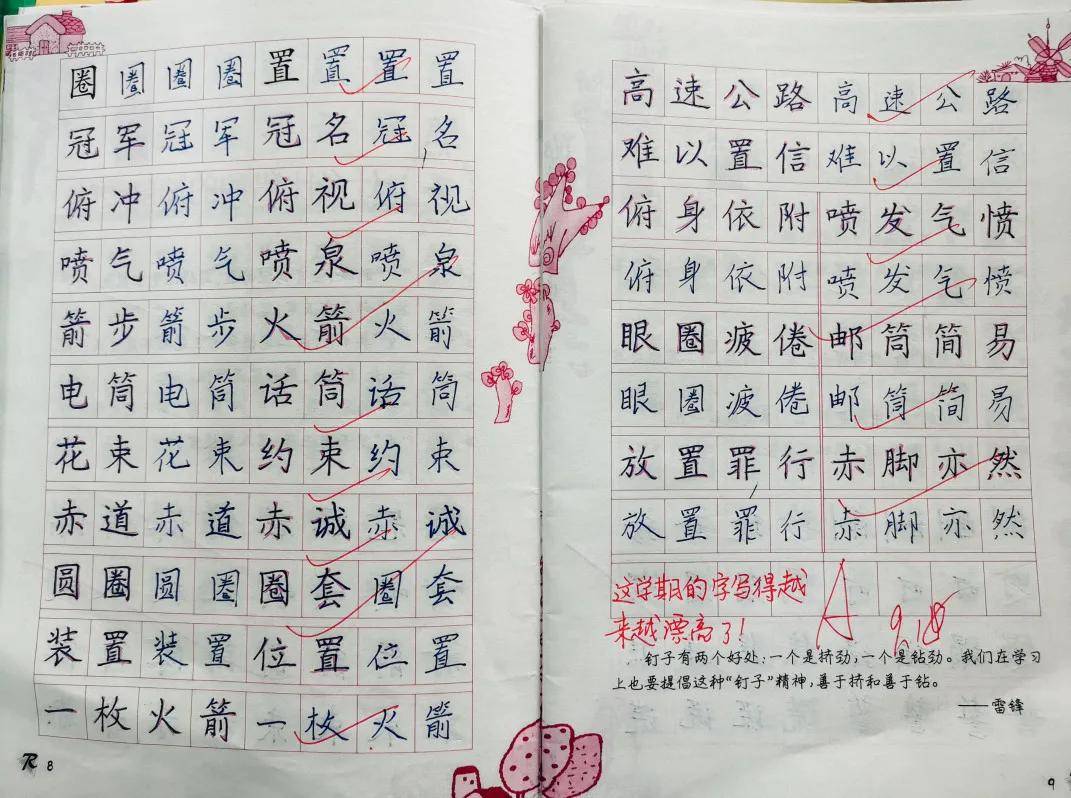 圈圈圈圈置置置置
冠军冠军冠名冠名
俯冲俯冲俯视俯视
喷气喷气喷泉喷泉
箭步箭步火箭火箭
电筒电筒话筒话筒
花束花束约束约束
赤道赤道赤诚赤诚
圆圈圆圈圈套圈套
装置装置位置位置
一枚火箭一枚火箭
8
高速公路高速公路
难以置信难以置信
俯身依附喷发气愤
俯身依附喷发气愤
眼圈疲倦邮筒简易
眼圈疲倦邮筒简易
放置罪行赤脚亦然
放置罪行赤脚亦然
这学期的字写得越
来越漂亮了!
A 9.18
钉子有两个好处:一个是挤劲,一个是钻劲。我们在学习
上也要提倡这种“钉子”精神,善于挤和善于钻。
——雷锋
9